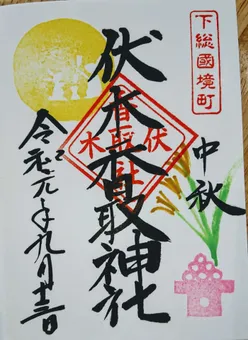 下総國境町
中秋
伏木香取神社
伏木
香取社
令和元年九月十三日